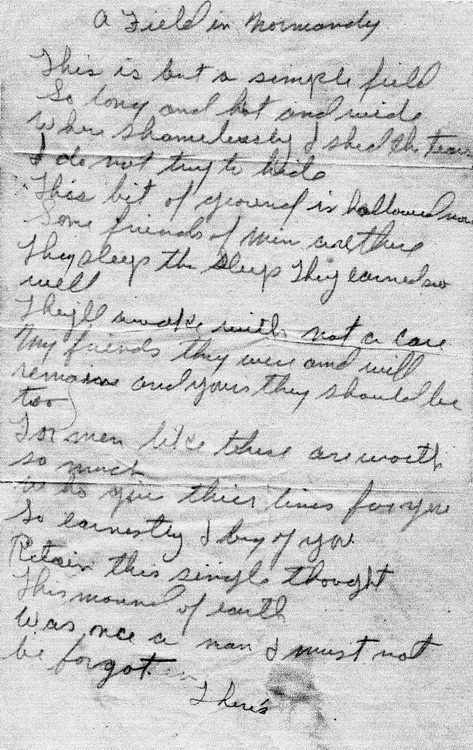 A Field in Normandy
This is but a simple field
So long and hot and wide
Where shamelessly I shed the tears
I do not try to hide
This bit of ground is hallowed now
Some friends of mine are there
They sleep the sleep they earned so
well
They'll awake with not a care
My friends they were and will
remain and yours they should be
too
For men like these are worth
so much
who give thier lives for you
So earnestly I beg of you
Retain this single thought
This mound of earth
Was once a man & must not
be forgot.
There's